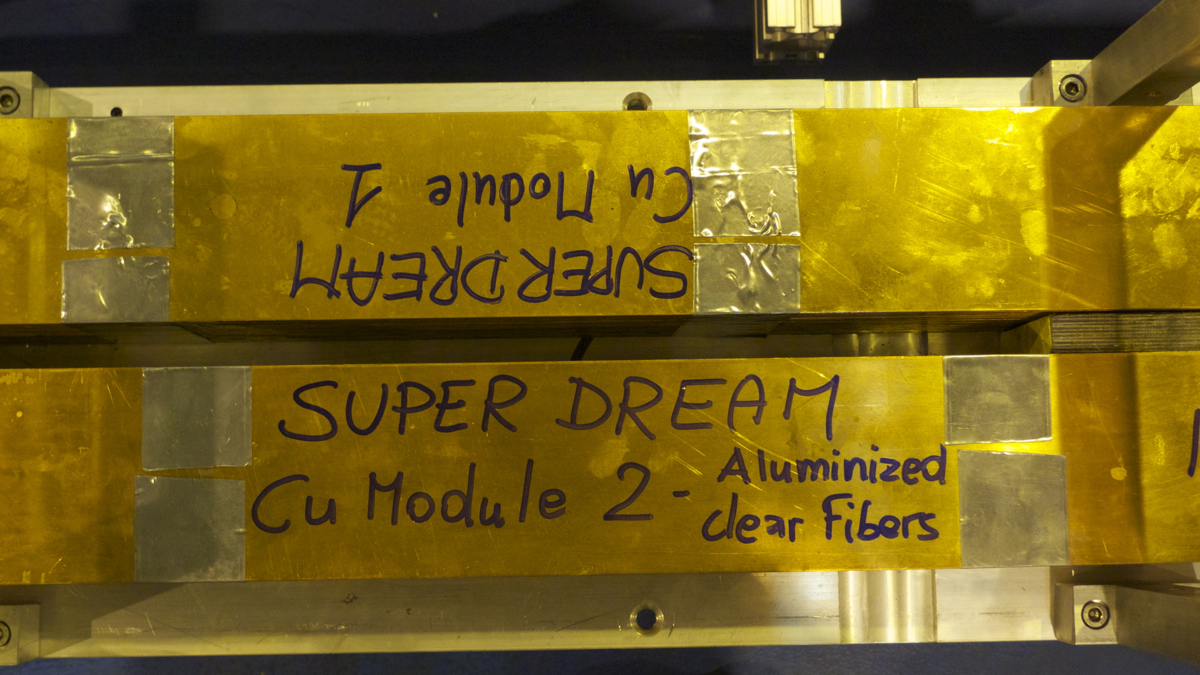 SUPER DREAM
Cu Module 1
SUPER DREAM
Cu Module 2 - Aluminized
clear Fibers